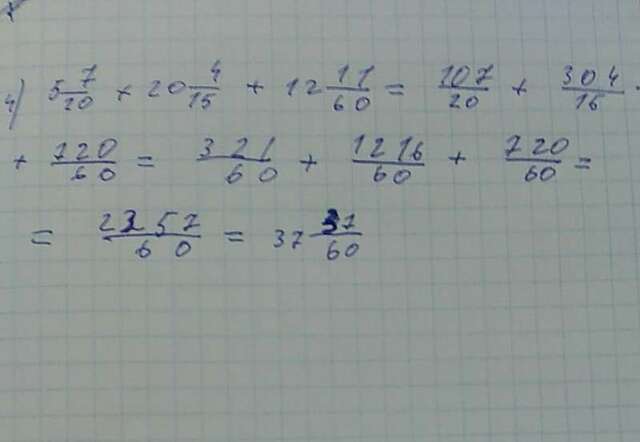 4) 5 7/20 + 20 4/15 + 12 11/60 = 107/20 + 304/15
+ 720/60 = 321/60 + 1216/60 + 720/60 =
= 2257/60 = 37 37/60